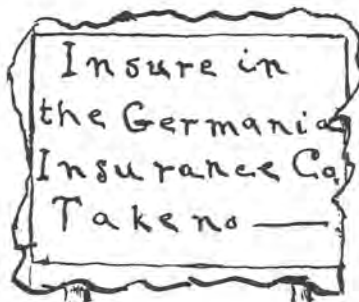 Insure in
the Germania
Insurance Co.
Take no —